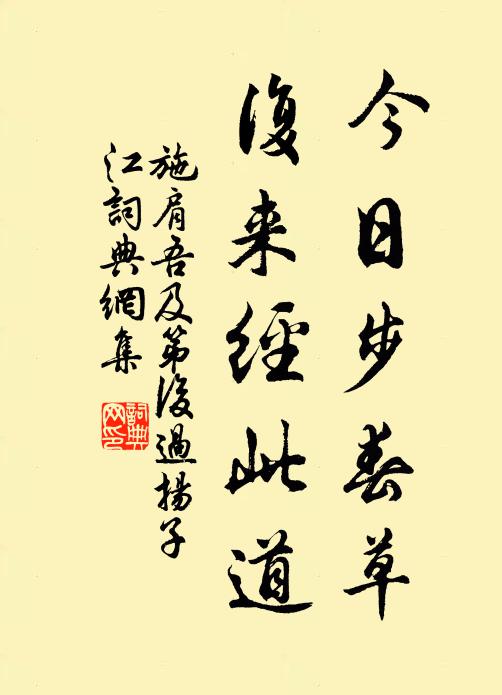 今日步春草
復来經此道
施肩吾及第後過揚子
江詞典網集
詞典网印